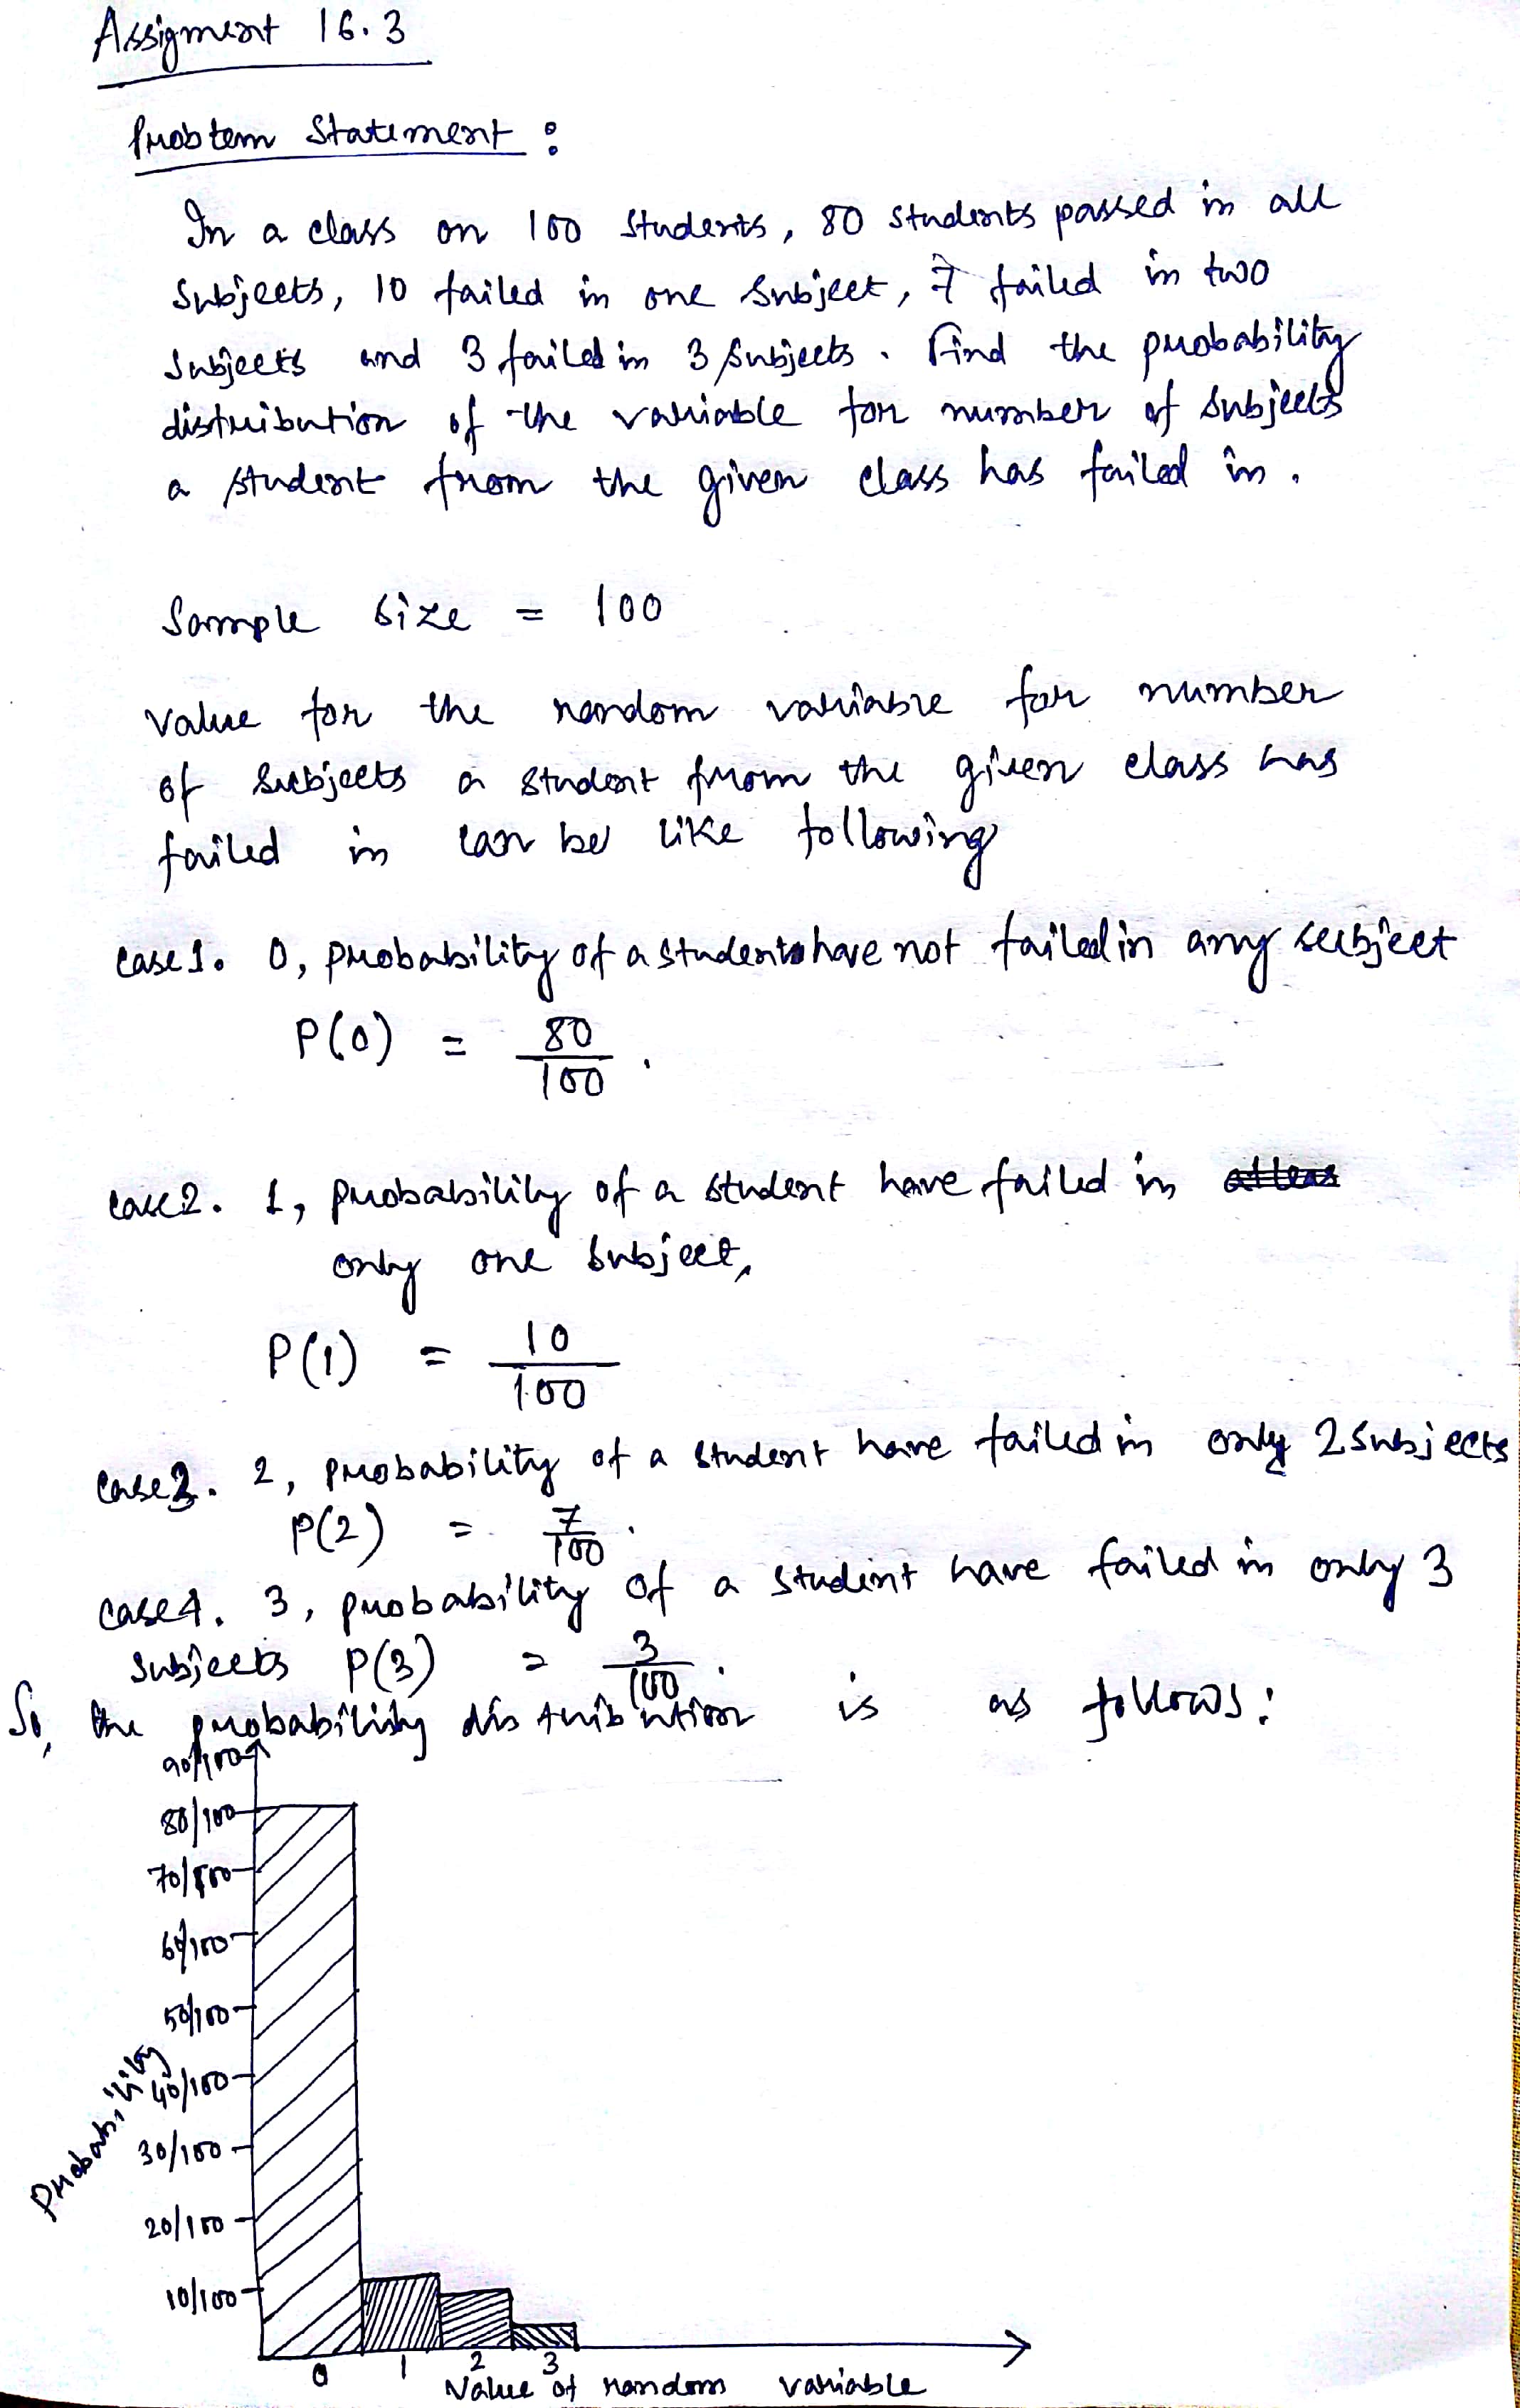 Assigment 16.3
Problem Statement :
In a class on 100 Students, 80 Students passed in all
Subjects, 10 failed in one Subject, 7 failed in two
Subjects and 3 failed in 3 Subjects. Find the probability
distribution of the variable for number of subjects
a student from the given class has failed in.
Sample Size = 100
Value for the random variable for number
of subjects a student from the given class has
failed in can be like following
Case 1. 0, probability of a students have not failed in any subject
P(0) = 80/100.
Case 2. 1, probability of a student have failed in
only one subject,
P(1) = 10/100
Case 3. 2, probability of a student have failed in only 2 subjects
P(2) = 7/100.
Case 4. 3, probability of a student have failed in only 3
Subjects P(3) = 3/100.
So, the probability distribution is as follows:
90/100
80/100
70/100
60/100
50/100
40/100
30/100
20/100
10/100
Probability
0 1 2 3
Value of random variable